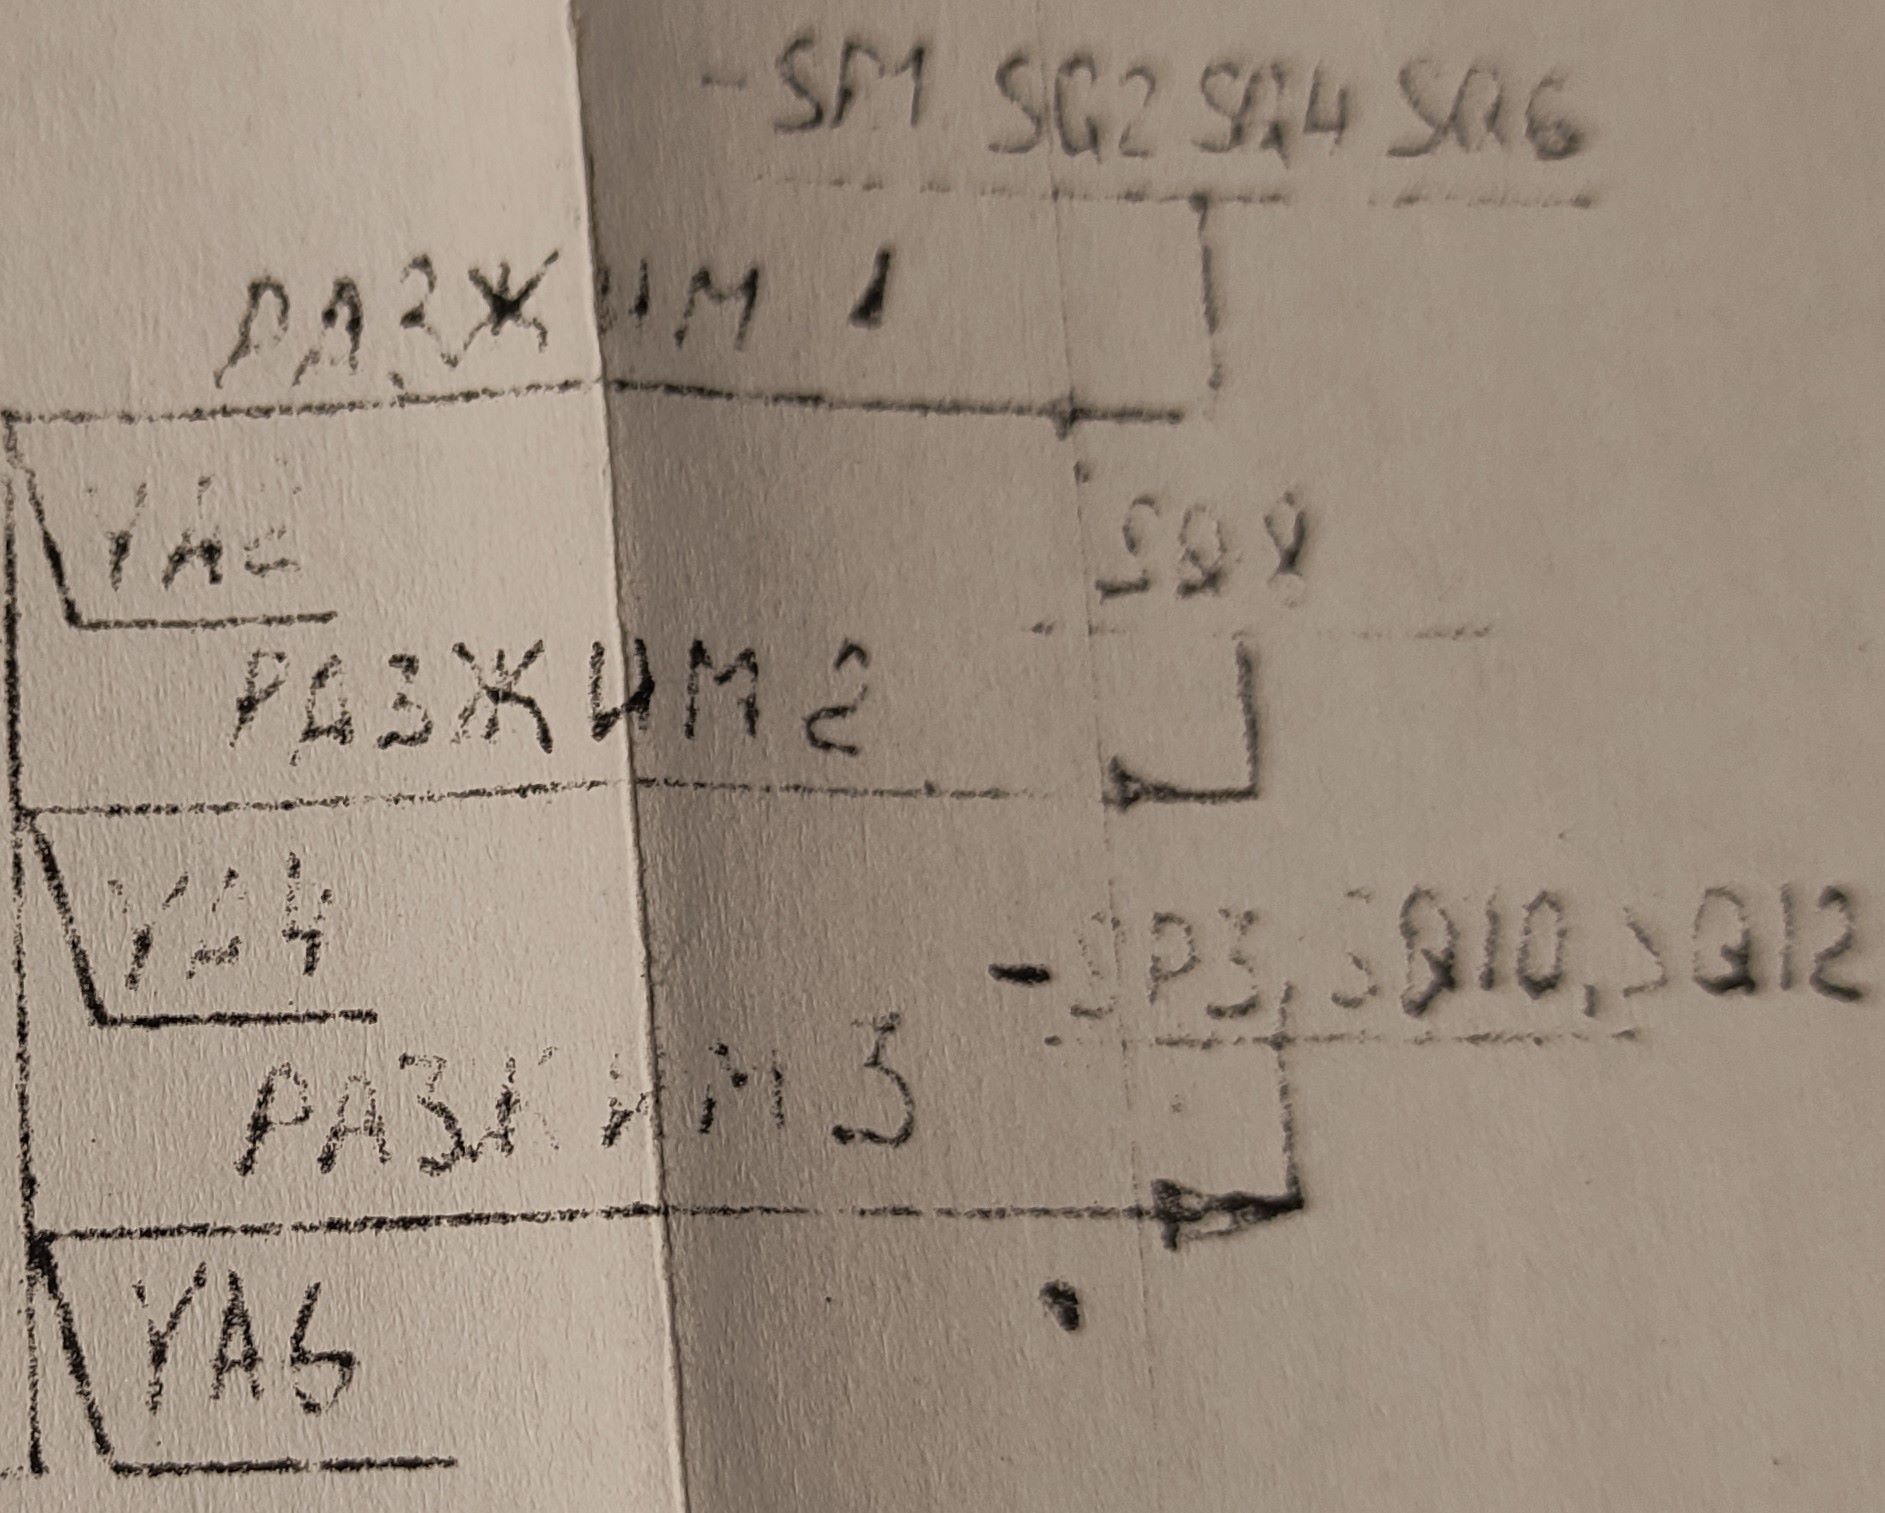 -SP1 SQ2 SQ4 SQ6
РАЗЖИМ 1
YA2
SQ8
РАЗЖИМ 2
YA4
-SP3, SQ10, SQ12
РАЗЖИМ 3
YA6